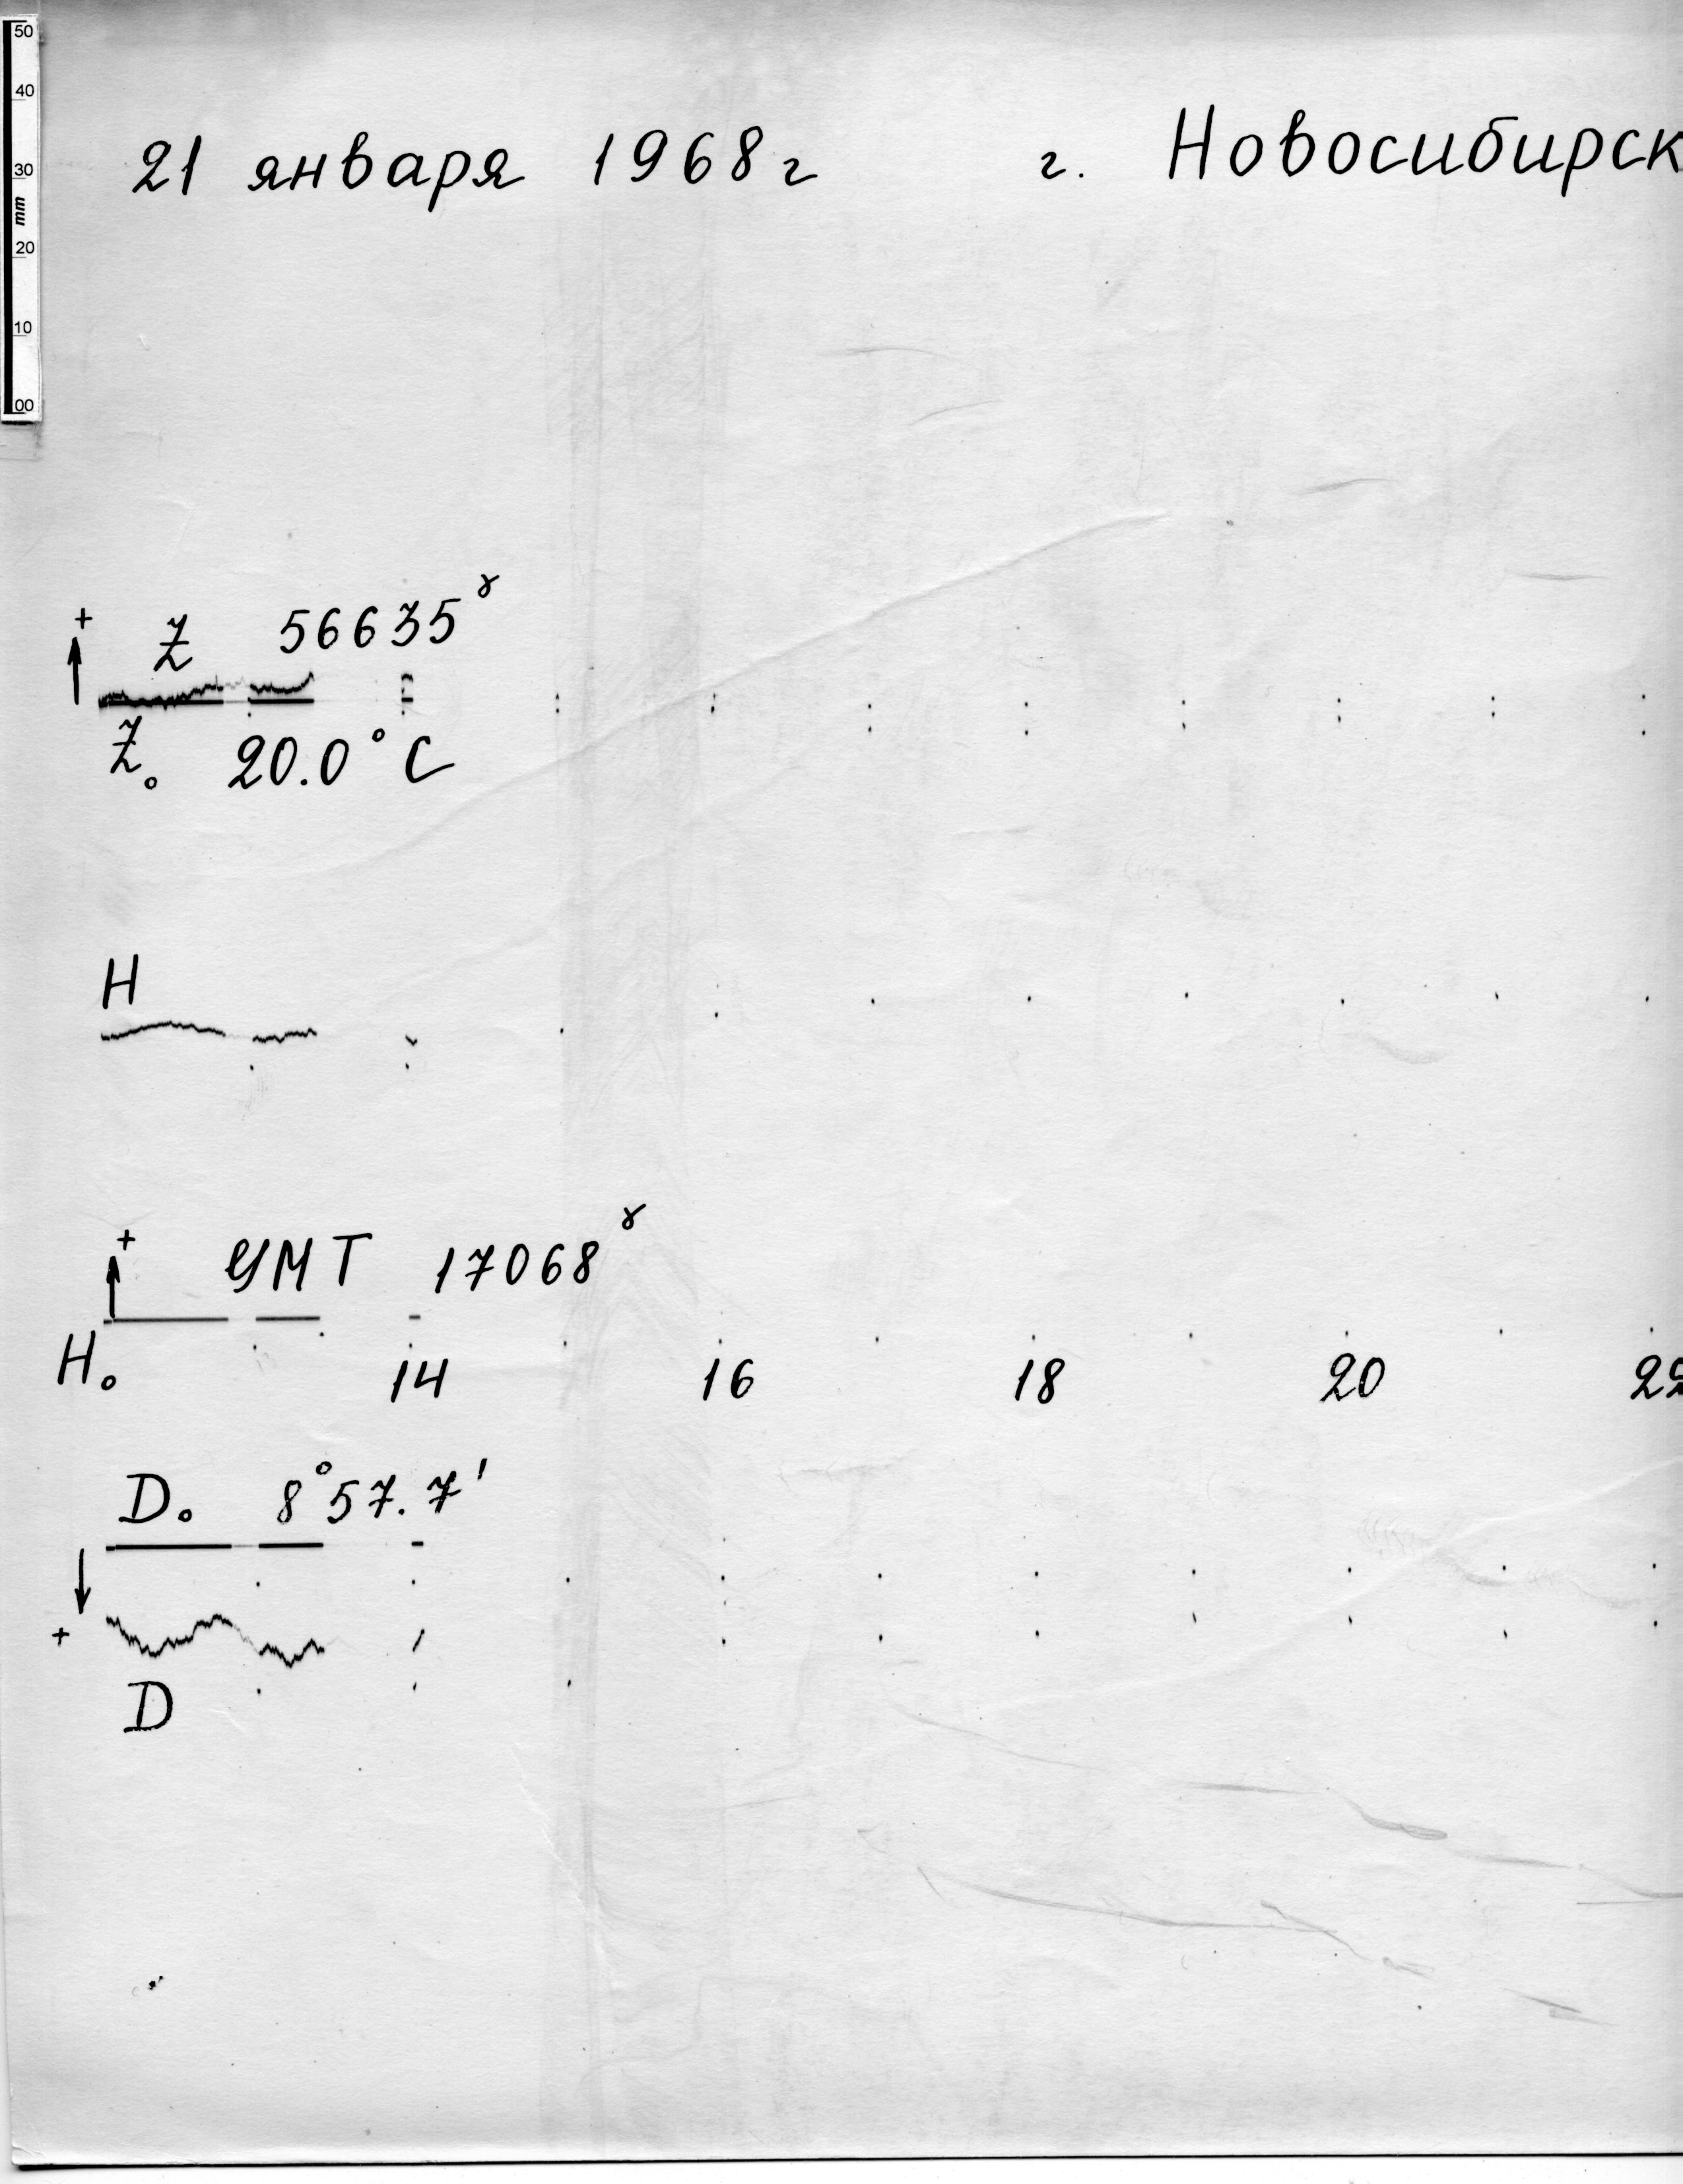 50
40
30
mm
20
10
00
21 января 1968 г г. Новосибирск
+ Z 56635 γ
Z₀ 20.0°C
H
+ УМТ 17068 γ
H₀
14 16 18 20 22
D₀ 8°57.7'
+
D